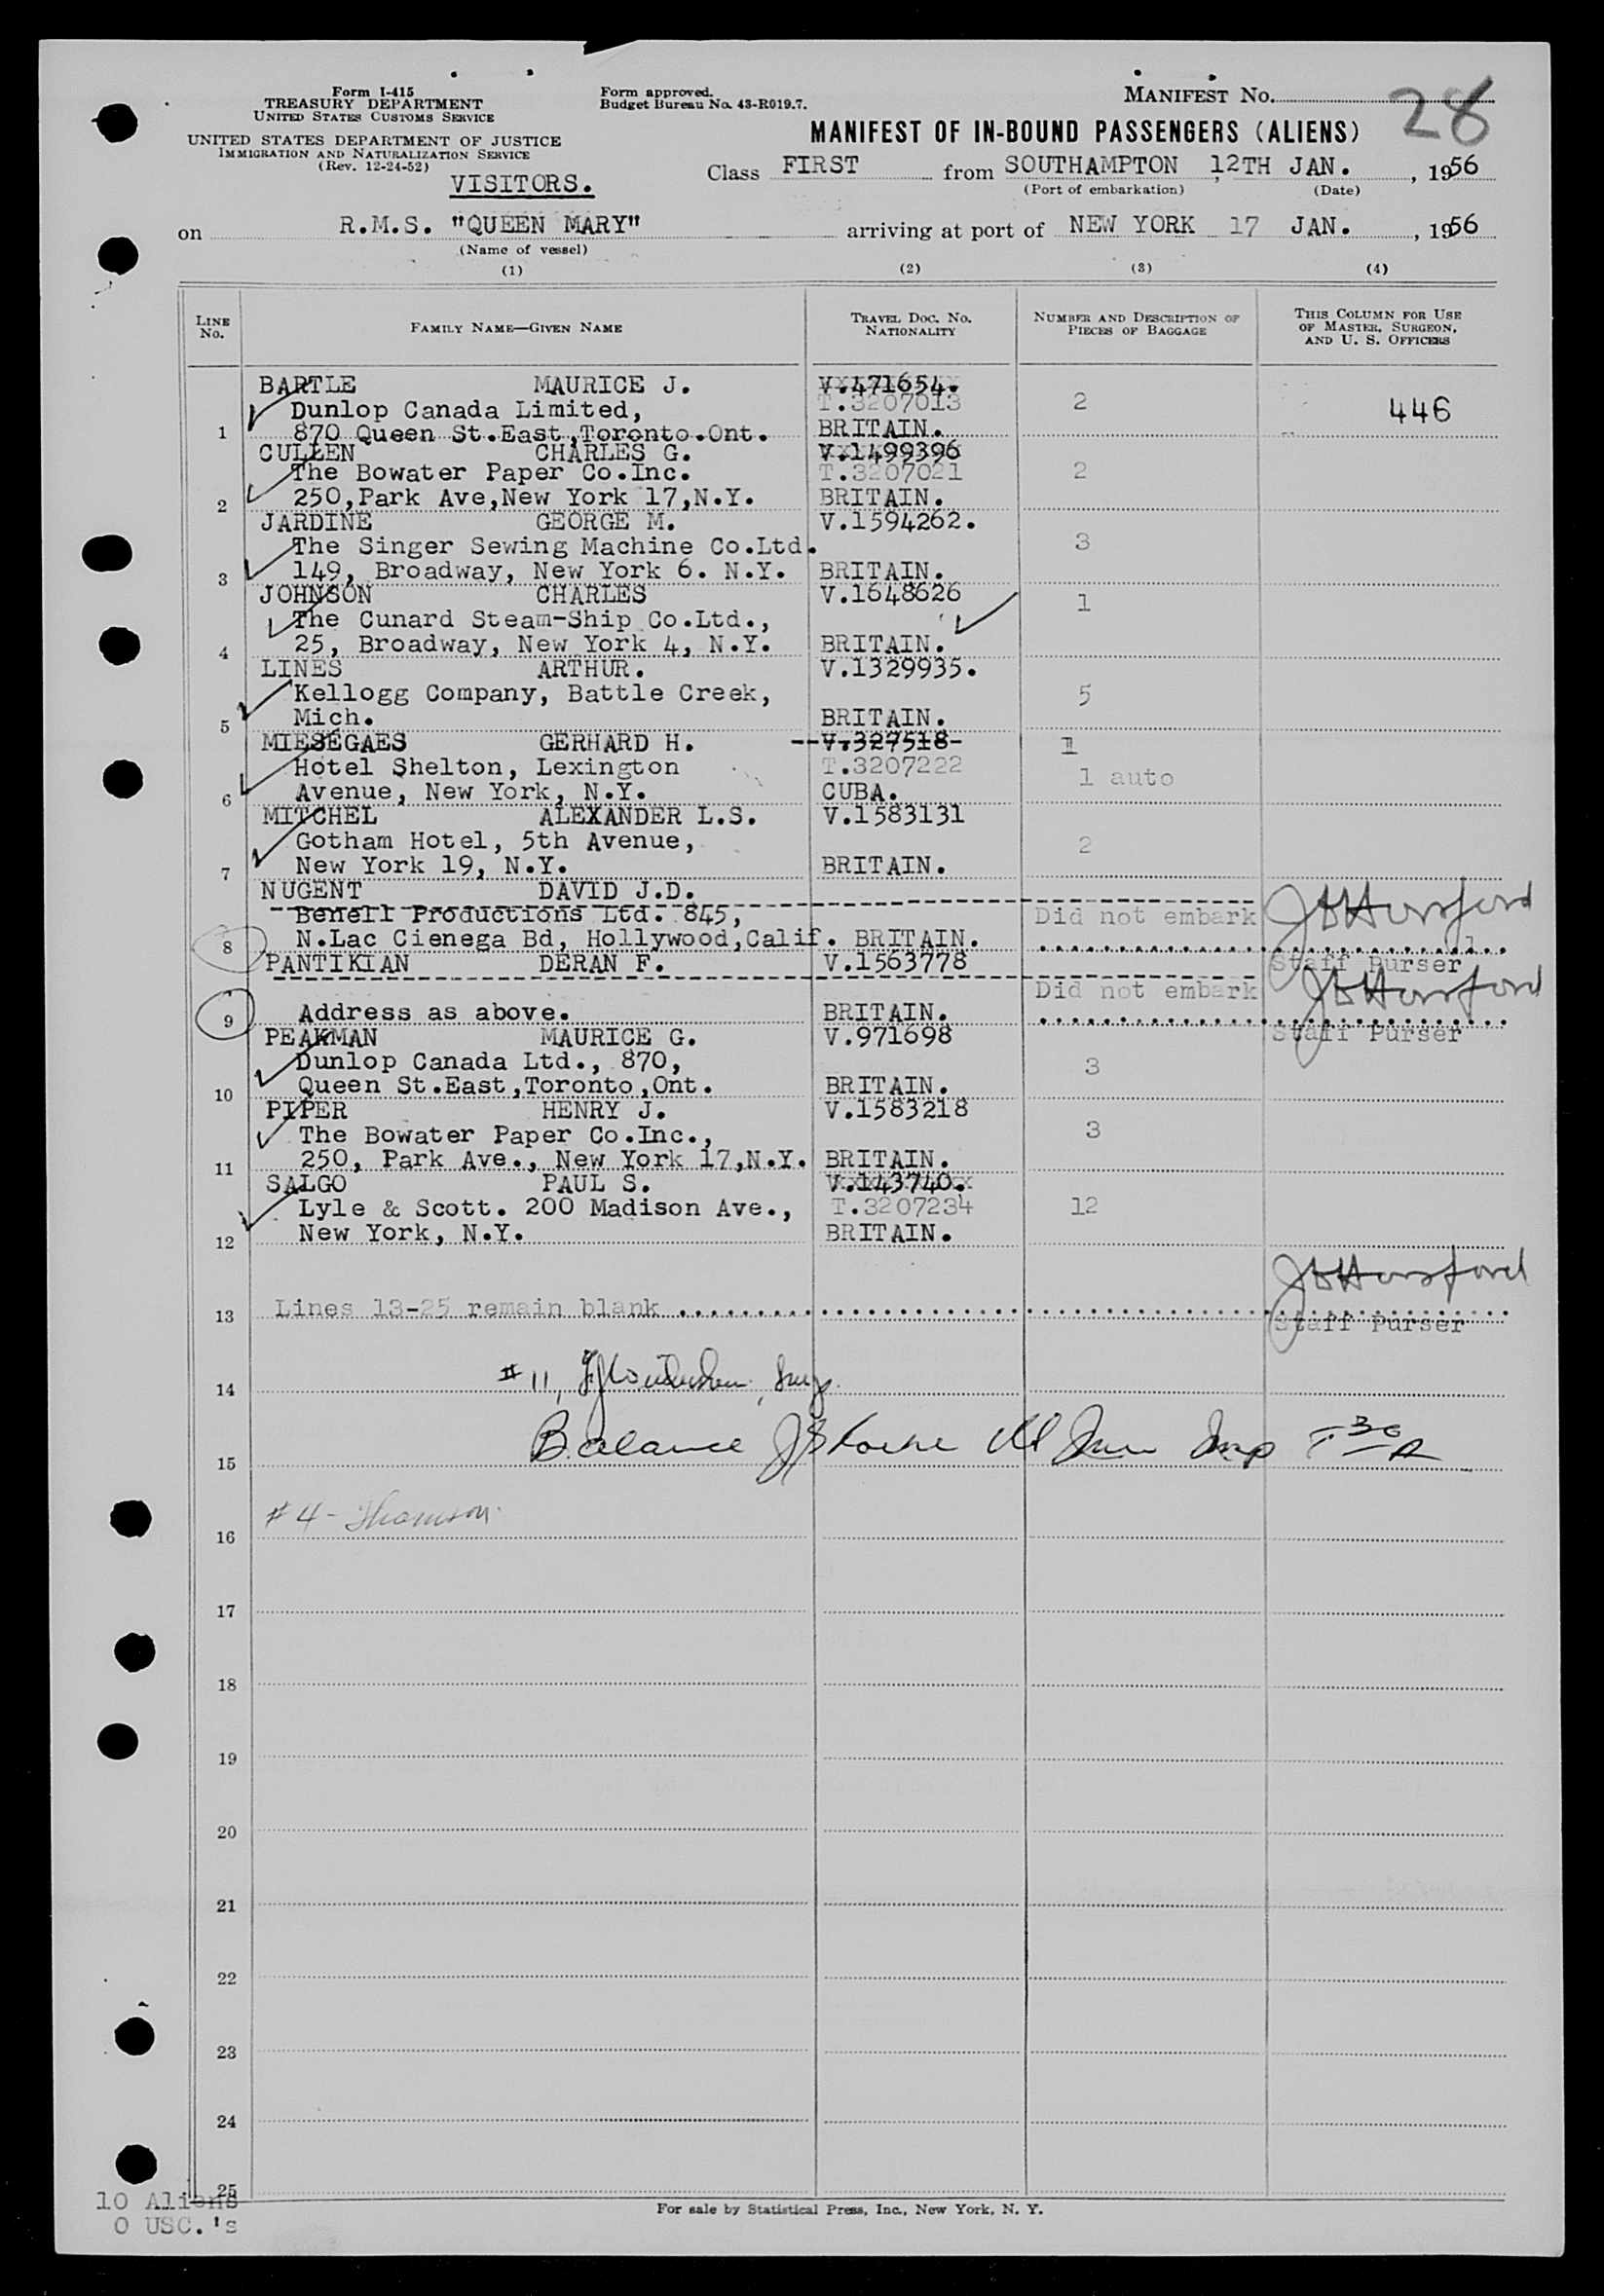 Form I-415
TREASURY DEPARTMENT
UNITED STATES CUSTOMS SERVICE
UNITED STATES DEPARTMENT OF JUSTICE
IMMIGRATION AND NATURALIZATION SERVICE
(Rev. 12-24-52)
VISITORS.
Form approved.
Budget Bureau No. 43-R019.7.
MANIFEST NO. 28
MANIFEST OF IN-BOUND PASSENGERS (ALIENS)
Class FIRST from SOUTHAMPTON 12TH JAN., 1956
(Port of embarkation) (Date)
on R.M.S. "QUEEN MARY" arriving at port of NEW YORK 17 JAN., 1956
(Name of vessel)
(1) (2) (3) (4)
LINE No. FAMILY NAME—GIVEN NAME TRAVEL DOC. NO. NATIONALITY NUMBER AND DESCRIPTION OF PIECES OF BAGGAGE THIS COLUMN FOR USE OF MASTER, SURGEON, AND U. S. OFFICERS
BARTLE MAURICE J. V.471654.
Dunlop Canada Limited, T.3207013 2 446
1 870 Queen St.East,Toronto.Ont. BRITAIN.
CULLEN CHARLES G. V.1499396
The Bowater Paper Co.Inc. T.3207021 2
2 250,Park Ave,New York 17,N.Y. BRITAIN.
JARDINE GEORGE M. V.1594262.
The Singer Sewing Machine Co.Ltd. 3
3 149, Broadway, New York 6. N.Y. BRITAIN.
JOHNSON CHARLES V.1648626
The Cunard Steam-Ship Co.Ltd., 1
4 25, Broadway, New York 4, N.Y. BRITAIN.
LINES ARTHUR. V.1329935.
Kellogg Company, Battle Creek, 5
5 Mich. BRITAIN.
MIESEGAES GERHARD H. V.327518 1
Hotel Shelton, Lexington T.3207222 1 auto
6 Avenue, New York, N.Y. CUBA.
MITCHEL ALEXANDER L.S. V.1583131
Gotham Hotel, 5th Avenue, 2
7 New York 19, N.Y. BRITAIN.
NUGENT DAVID J.D.
Benell Productions Ltd. 845, Did not embark
8 N.Lac Cienega Bd, Hollywood,Calif. BRITAIN.
PANTIKIAN DERAN F. V.1563778 Staff Purser
Did not embark
9 Address as above. BRITAIN.
PEAKMAN MAURICE G. V.971698 Staff Purser
Dunlop Canada Ltd., 870, 3
10 Queen St.East,Toronto,Ont. BRITAIN.
PIPER HENRY J. V.1583218
The Bowater Paper Co.Inc., 3
11 250, Park Ave., New York 17,N.Y. BRITAIN.
SALGO PAUL S. V.143740.
Lyle & Scott. 200 Madison Ave., T.3207234 12
12 New York, N.Y. BRITAIN.
13 Lines 13-25 remain blank
Staff Purser
14 # 11,
15 Balance
16 # 4 - Thomson
17
18
19
20
21
22
23
24
25
10 Aliens
0 USC.'s
For sale by Statistical Press, Inc., New York, N. Y.